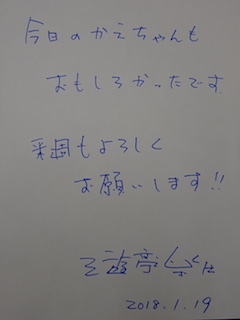 今日のかえちゃんも
おもしろかったです
来週もよろしく
お願いします!!
三遊亭
2018.1.19